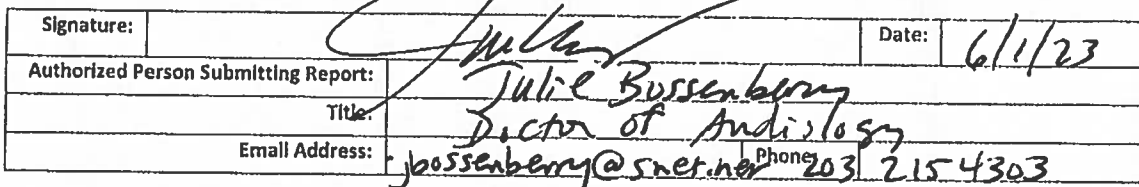 Signature: Date: 6/1/23
Authorized Person Submitting Report: Julie Bossenberry
Title: Doctor of Audiology
Email Address: jbossenberry@snet.net Phone 203 2154303